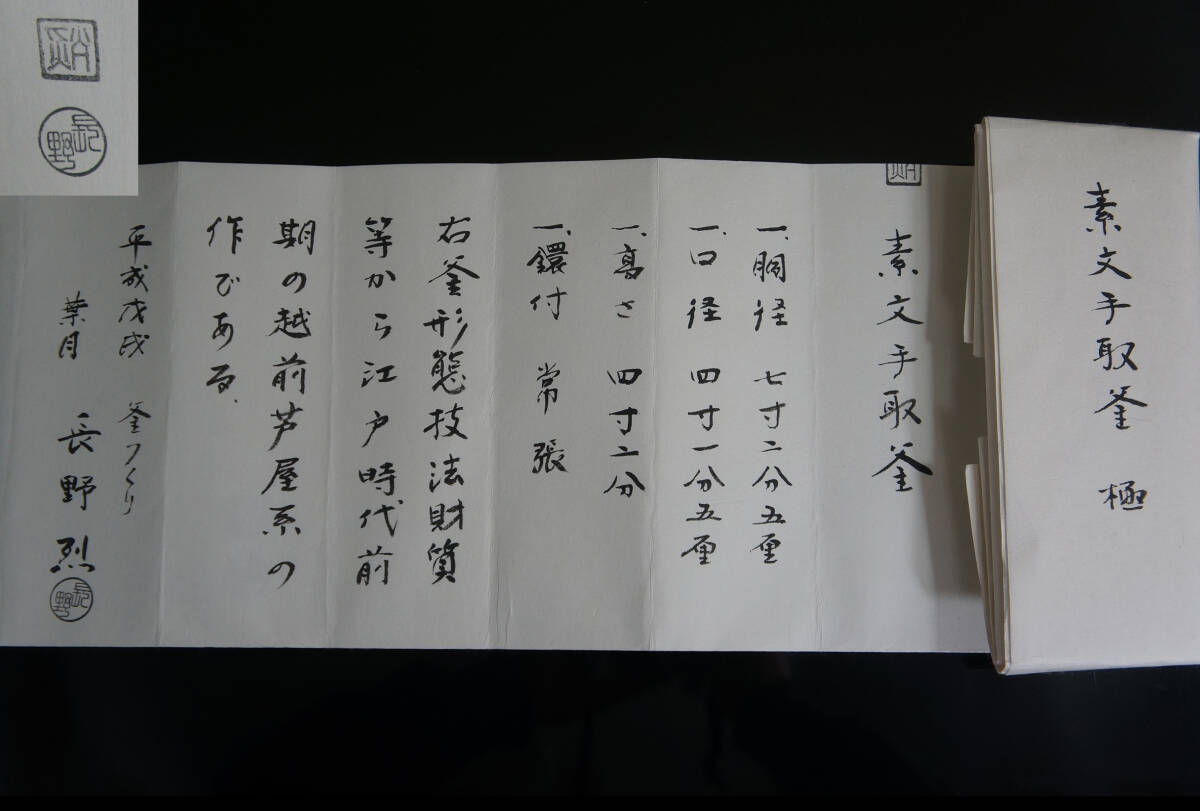 素文手取釜 極
素文手取釜
一、胴径 七寸二分五厘
一、口径 四寸一分五厘
一、高さ 四寸二分
一、鐶付 常張
右釜形態技法財質
等から江戸時代前
期の越前芦屋系の
作である、
平成戊戌 釜つくり
葉月 長野烈
長野
長野